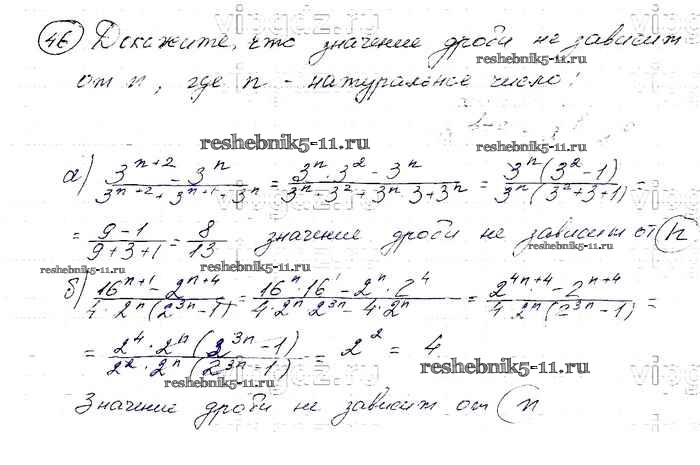 46 Докажите, что значение дроби не зависит
от n, где n - натуральное число:
а) (3^(n+2) - 3^n)/(3^(n+2) + 3^(n+1) + 3^n) = (3^n · 3^2 - 3^n)/(3^n · 3^2 + 3^n · 3 + 3^n) = (3^n (3^2 - 1))/(3^n (3^2 + 3 + 1)) =
= (9 - 1)/(9 + 3 + 1) = 8/13 значение дроби не зависит от n
б) (16^(n+1) - 2^(n+4))/(4 · 2^n (2^(3n) - 1)) = (16^n · 16^1 - 2^n · 2^4)/(4 · 2^n · 2^(3n) - 4 · 2^n) = (2^(4n+4) - 2^(n+4))/(4 · 2^n (2^(3n) - 1)) =
= (2^4 · 2^n (2^(3n) - 1))/(2^2 · 2^n (2^(3n) - 1)) = 2^2 = 4
Значение дроби не зависит от n
reshebnik5-11.ru
reshebnik5-11.ru
reshebnik5-11.ru
reshebnik5-11.ru
reshebnik5-11.ru
reshebnik5-11.ru
reshebnik5-11.ru
reshebnik5-11.ru